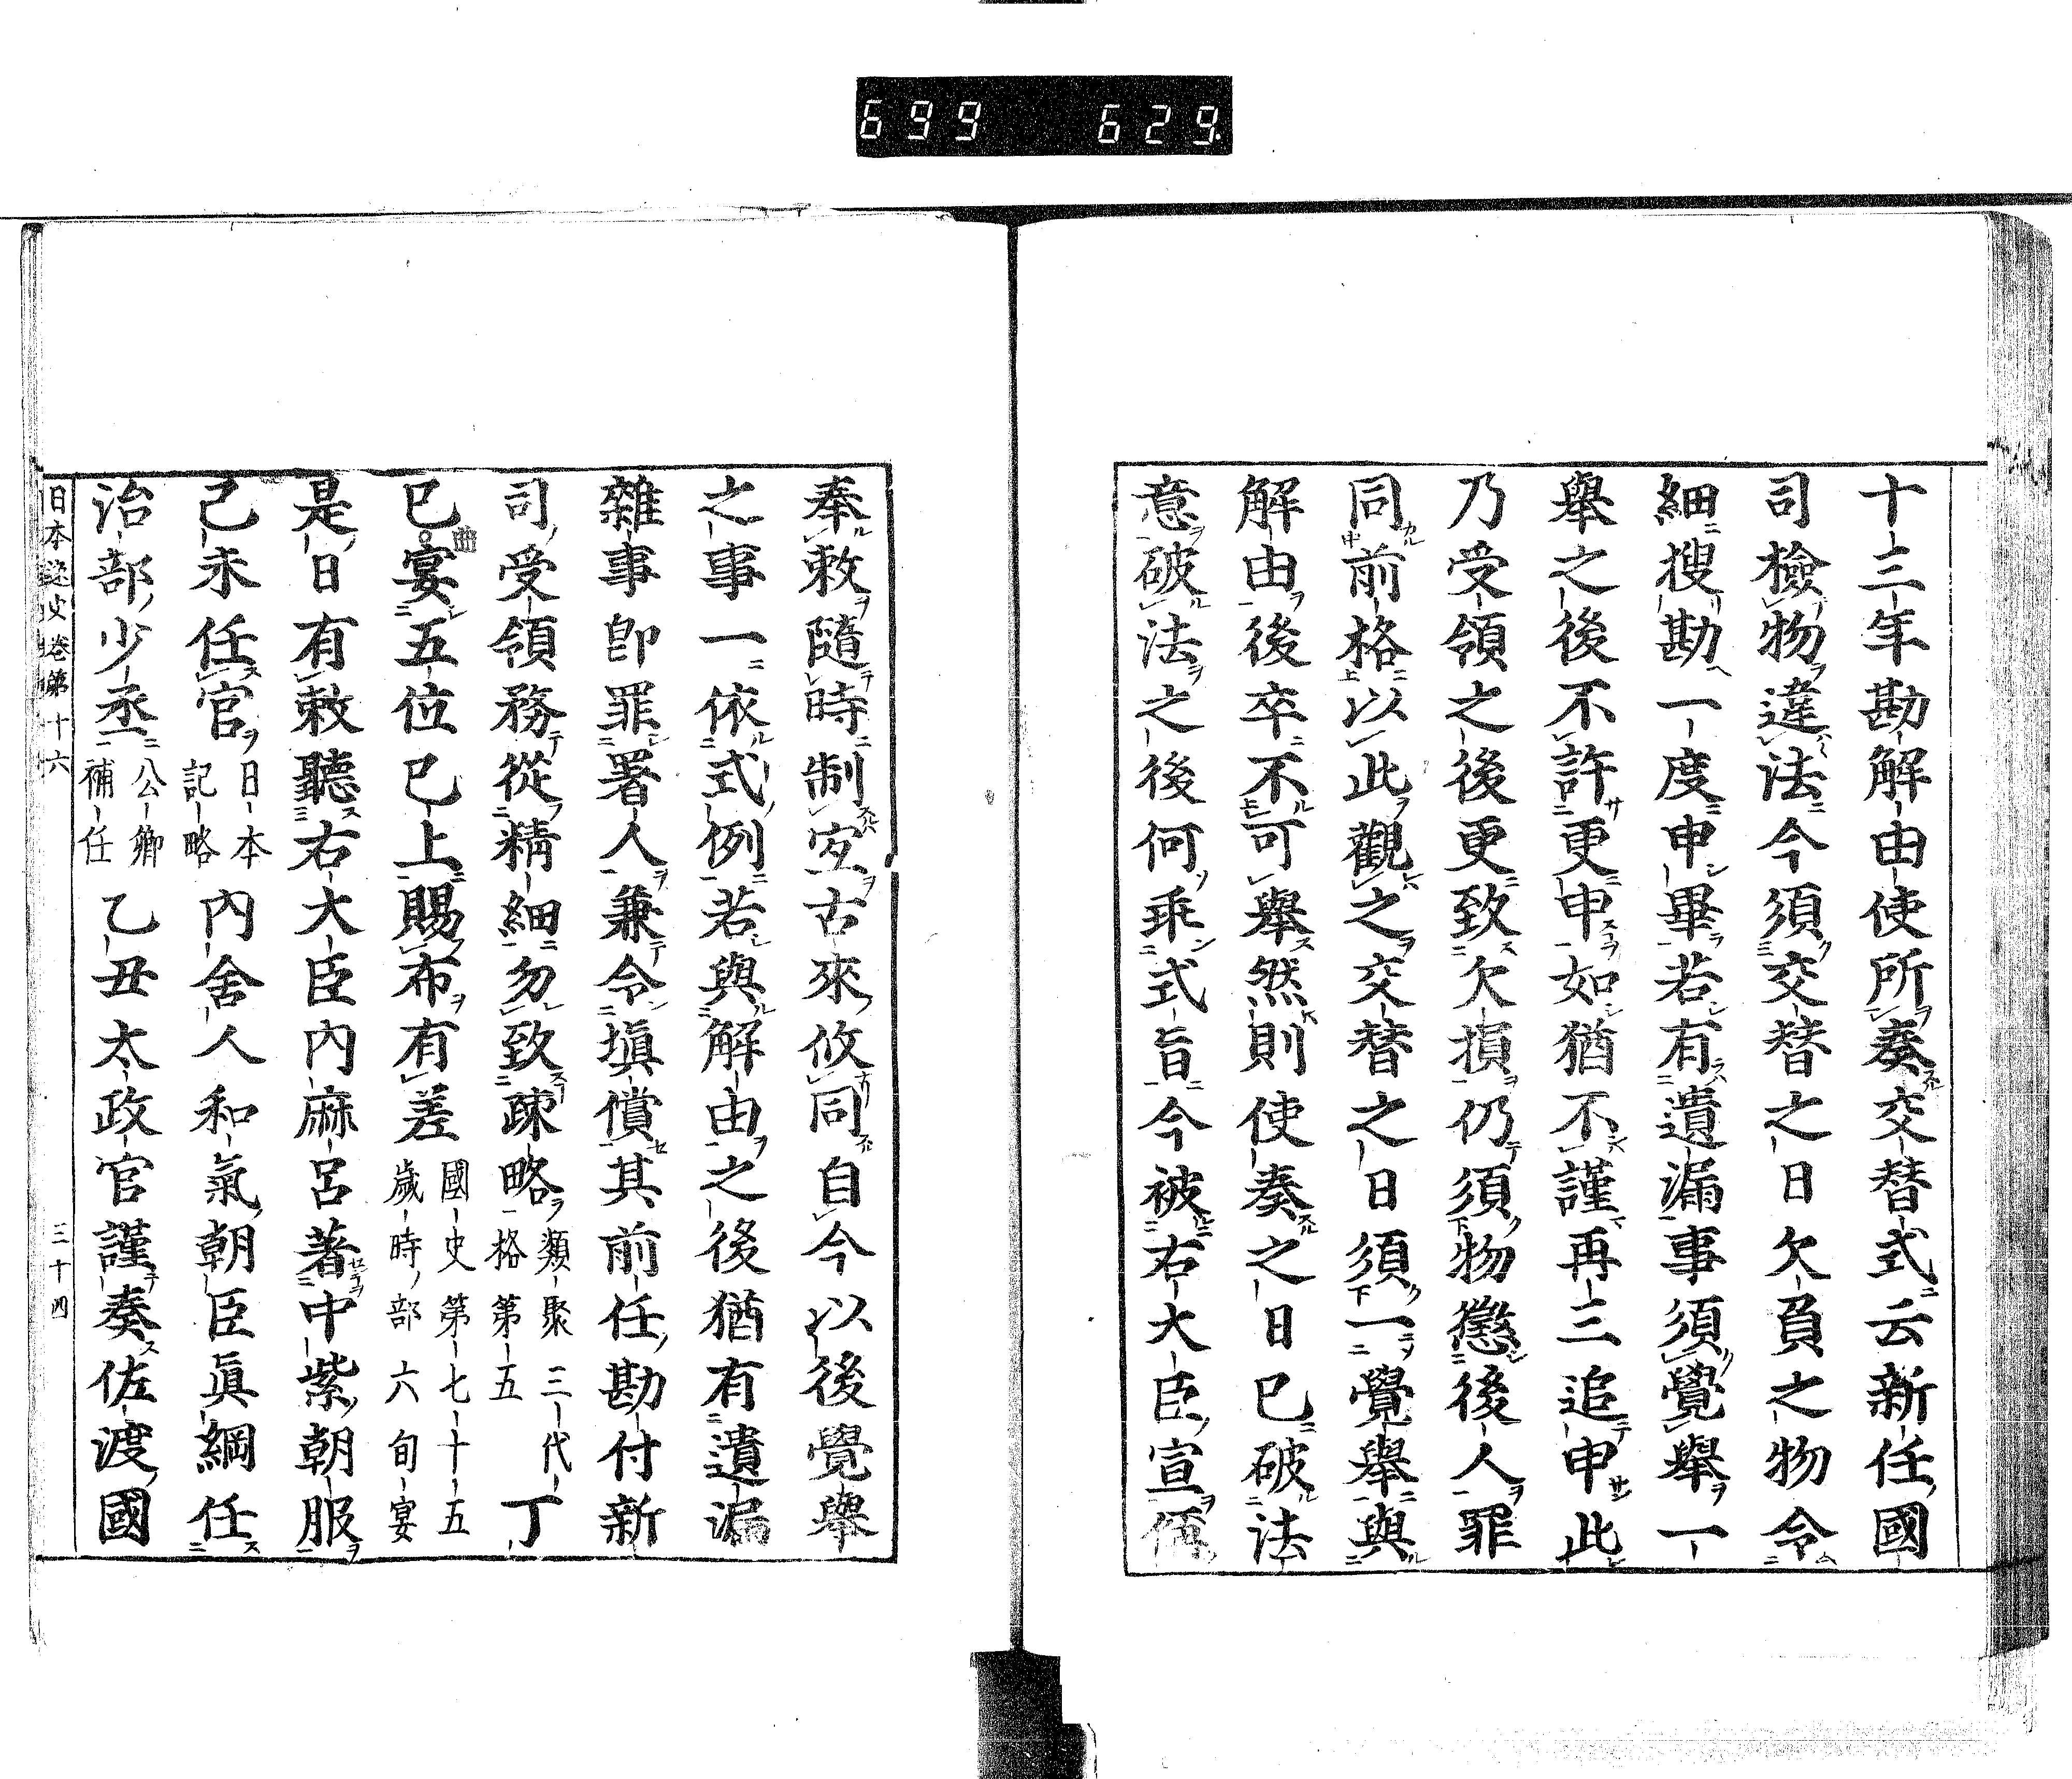 699 629
十三年勘解由使所奏交替式云新任國
司檢物違法今須交替之日欠負之物令
細搜勘一度申畢若有遺漏事須覺舉一
舉之後不許更申如猶不謹再三追申此
乃受領之後更致欠損仍須物懲後人罪
同前格以此觀之交替之日須一覺舉與
解由後卒不可舉然則使奏之日已破法
意破法之後何乖式旨今被右大臣宣偁
奉敕隨時制宜古來攸同自今以後覺舉
之事一依式例若與解由之後猶有遺漏
雜事卽罪署人兼令塡償其前任勘付新
司受領務從精細勿致疎略類聚三代格第五丁
巳宴五位已上賜布有差國史第七十五歲時部六旬宴
是日有敕聽右大臣內麻呂著中紫朝服
己未任官日本記略內舍人和氣朝臣眞綱任
治部少丞公卿補任乙丑太政官謹奏佐渡國
日本逸史卷第十六 三十四